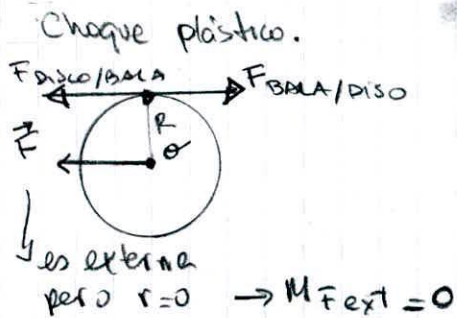 Choque plástico.
F DISCO/BALA
F BALA/DISO
R
O
F
es externa
pero r=0 → M F ext = 0